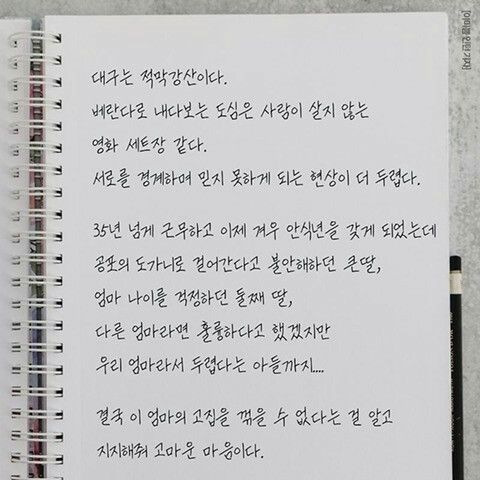 [이미블인턴기자]
대구는 적막강산이다.
베란다로 내다보는 도심은 사람이 살지 않는
영화 세트장 같다.
서로를 경계하며 믿지 못하게 되는 현상이 더 두렵다.
35년 넘게 근무하고 이제 겨우 안식년을 갖게 되었는데
공포의 도가니로 걸어간다고 불안해하던 큰딸,
엄마 나이를 걱정하던 둘째 딸,
다른 엄마라면 훌륭하다고 했겠지만
우리 엄마라서 두렵다는 아들까지...
결국 이 엄마의 고집을 꺾을 수 없다는 걸 알고
지지해줘 고마운 마음이다.